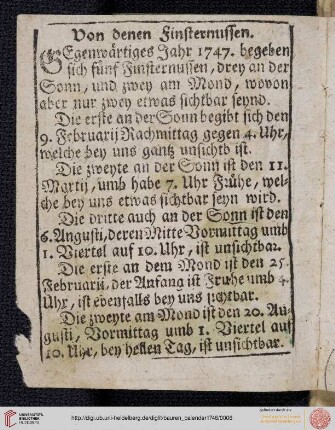 Von denen Finsternussen.
GEgenwärtiges Jahr 1747. begeben
sich fünf Finsternussen, drey an der
Sonn, und zwey am Mond, wovon
aber nur zwey etwas sichtbar seynd.
Die erste an der Sonn begibt sich den
9. Februarij Nachmittag gegen 4. Uhr,
welche bey uns gantz unsichtb ist.
Die zweyte an der Sonn ist den 11.
Martij, umb habe 7. Uhr Frühe, wel-
che bey uns etwas sichtbar seyn wird.
Die dritte auch an der Sonn ist den
6. Augusti, deren Mitte Vormittag umb
1. Viertel auf 10. Uhr, ist unsichtbar.
Die erste an dem Mond ist den 25.
Februarii, der Anfang ist Fruhe umb 4.
Uhr, ist ebenfalls bey uns sichtbar.
Die zweyte am Mond ist den 20. Au-
gusti, Vormittag umb 1. Viertel auf
10. Uhr, bey hellen Tag, ist unsichtbar.
UNIVERSITÄTS-
BIBLIOTHEK
HEIDELBERG
http://digi.ub.uni-heidelberg.de/diglit/bauren_calender1746/0006